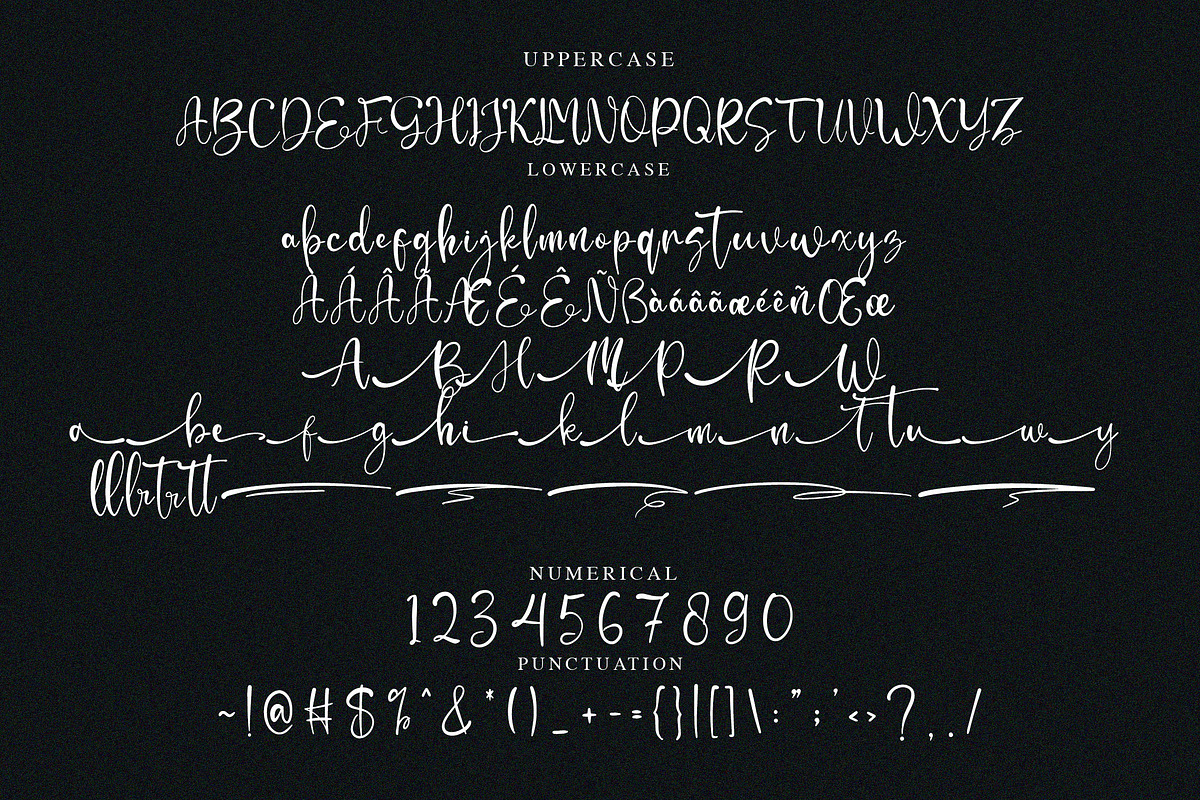 UPPERCASE
ABCDEFGHIJKLMNOPQRSTUVWXYZ
LOWERCASE
abcdefghijklmnopqrstuvwxyz
ÀÁÂÃÆÉÊÑßàáâãæéêñŒœ
A B H M P R W
a be f g hi k l m n t tu w y
lllbrtrtt
NUMERICAL
1234567890
PUNCTUATION
~!@#$%^&*()_+-={}|[]\:";'<>?,./